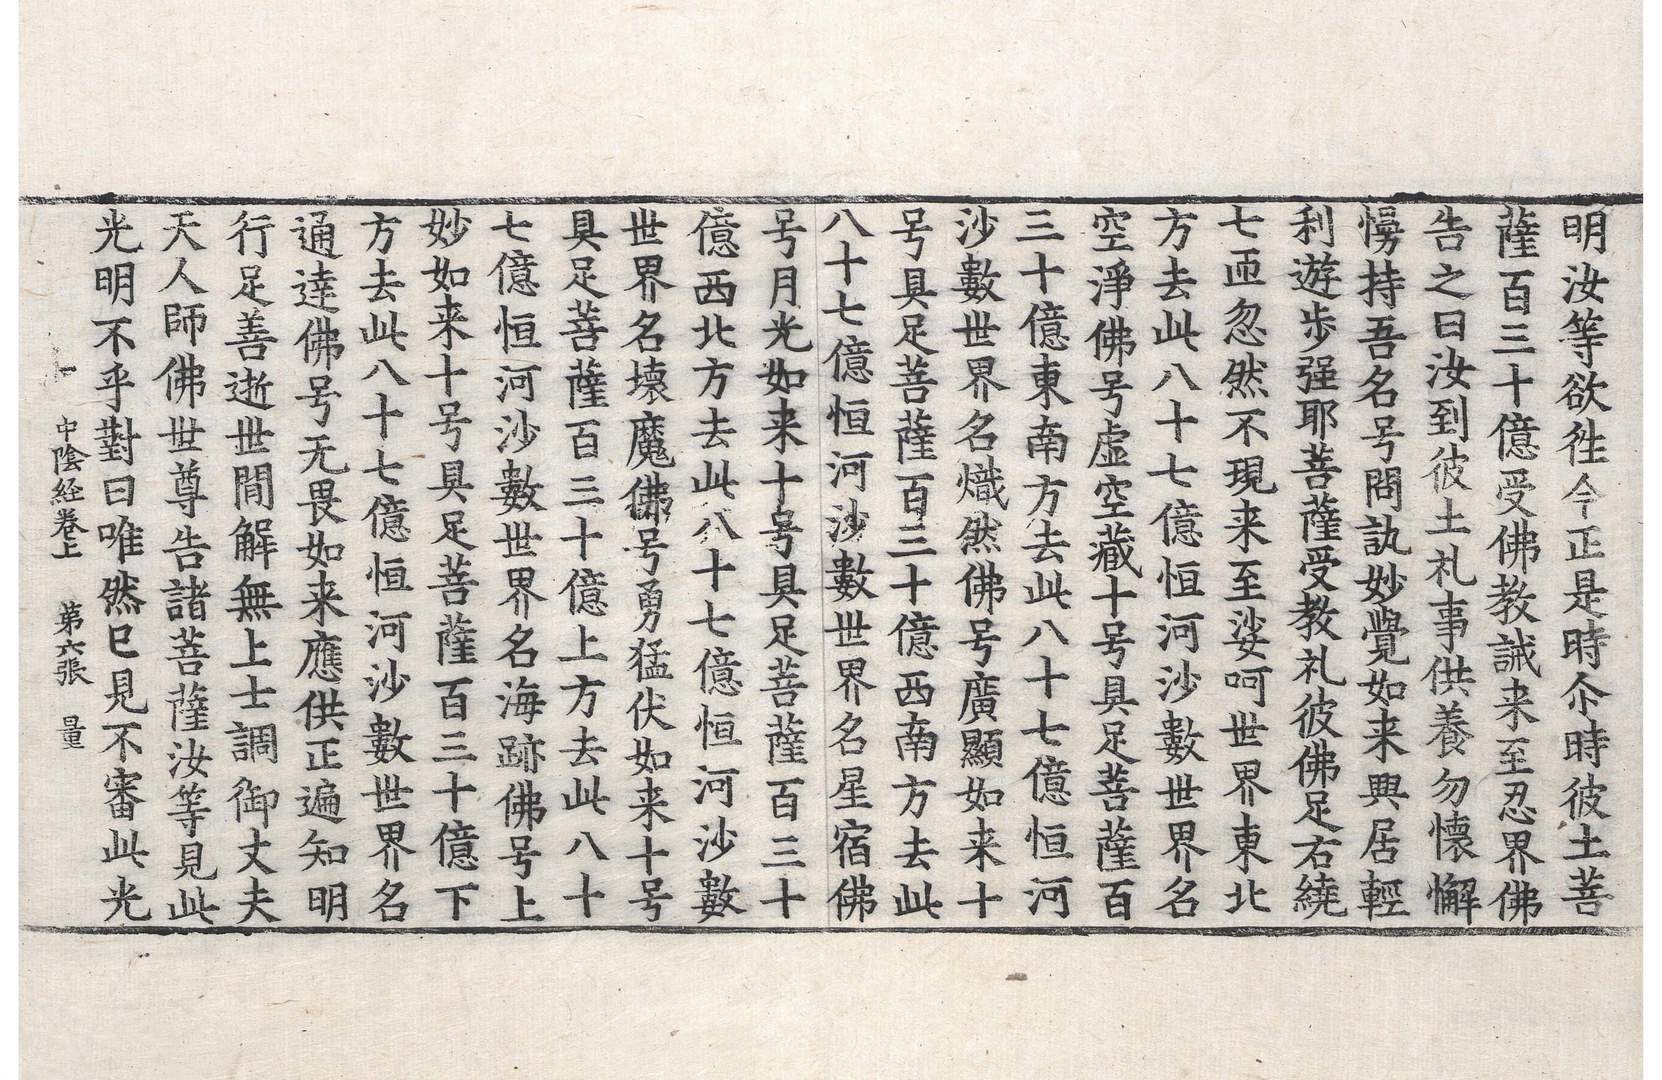 明汝等欲徃今正是時尒時彼土菩
薩百三十億受佛教誡来至忍界佛
告之曰汝到彼土礼事供養勿懷懈
慢持吾名号問訊妙覺如来興居輕
利遊步强耶菩薩受教礼彼佛足右繞
七匝忽然不現来至娑呵世界東北
方去此八十七億恒河沙數世界名
空淨佛号虛空藏十号具足菩薩百
三十億東南方去此八十七億恒河
沙數世界名熾然佛号廣顯如来十
号具足菩薩百三十億西南方去此
八十七億恒河沙數世界名星宿佛
号月光如来十号具足菩薩百三十
億西北方去此八十七億恒河沙數
世界名壞魔佛号勇猛伏如来十号
具足菩薩百三十億上方去此八十
七億恒河沙數世界名海跡佛号上
妙如来十号具足菩薩百三十億下
方去此八十七億恒河沙數世界名
通達佛号无畏如来應供正遍知明
行足善逝世間解無上士調御丈夫
天人師佛世尊告諸菩薩汝等見此
光明不乎對曰唯然已見不審此光
中陰経卷上 第六張 量